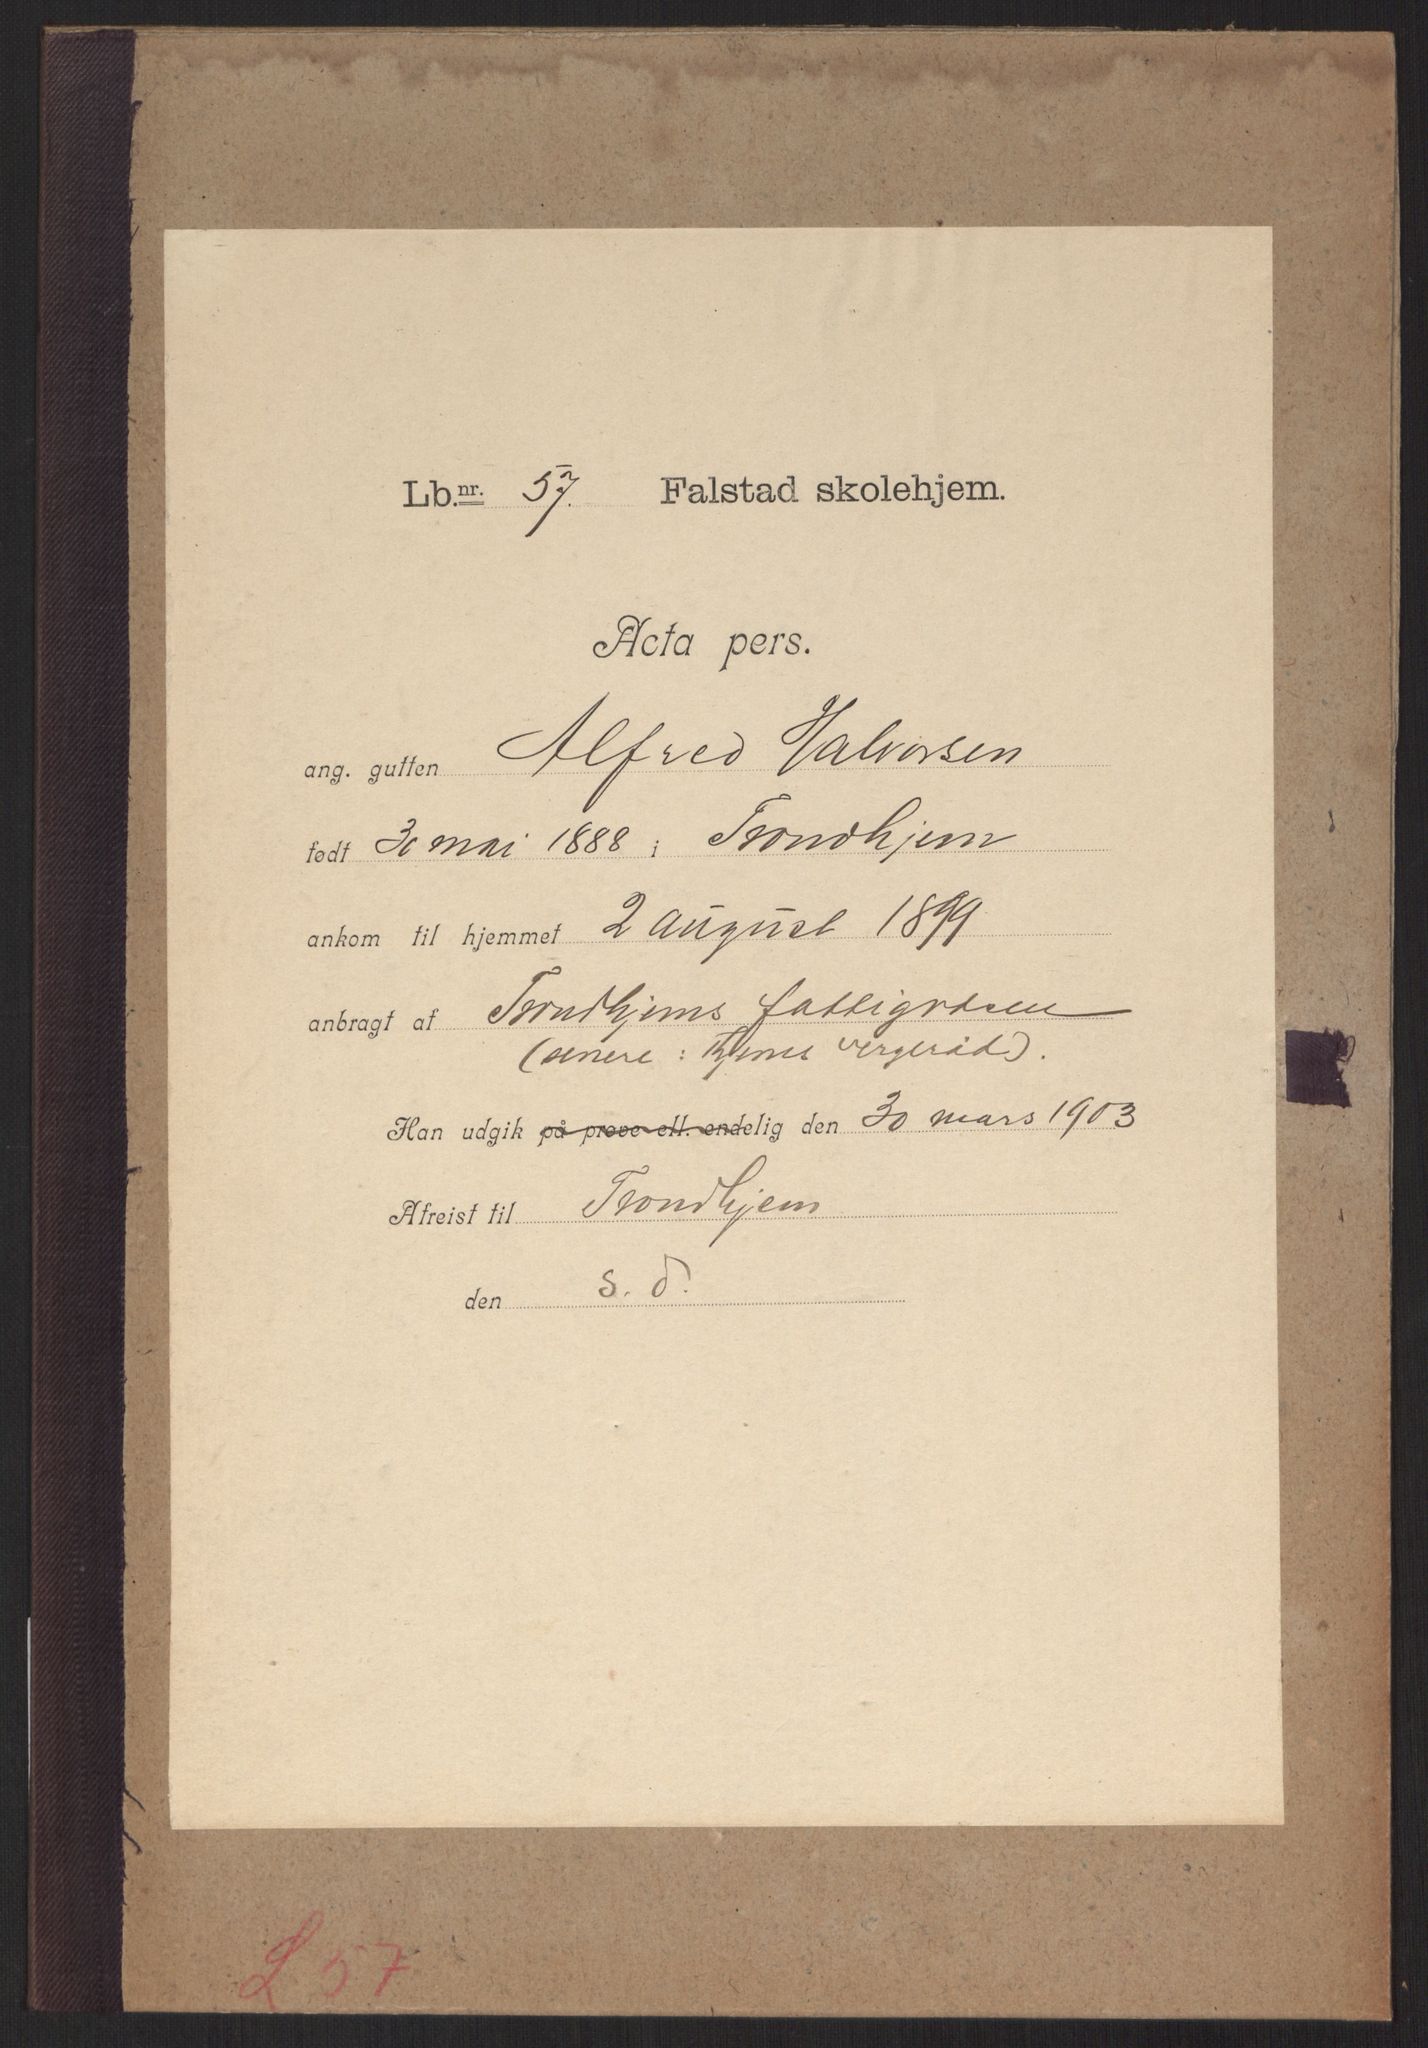 Lb.nr. 57. Falstad skolehjem.
Acta pers.
ang. gutten Alfred Halvorsen
født 30 mai 1888 i Trondhjem
ankom til hjemmet 2 august 1899
anbragt af Trondhjems fattigvæsen
(senere: Thjems vergeråd).
Han udgik på prøve ell. endelig den 30 mars 1903
Afreist til Trondhjem
den s. d.
L 57